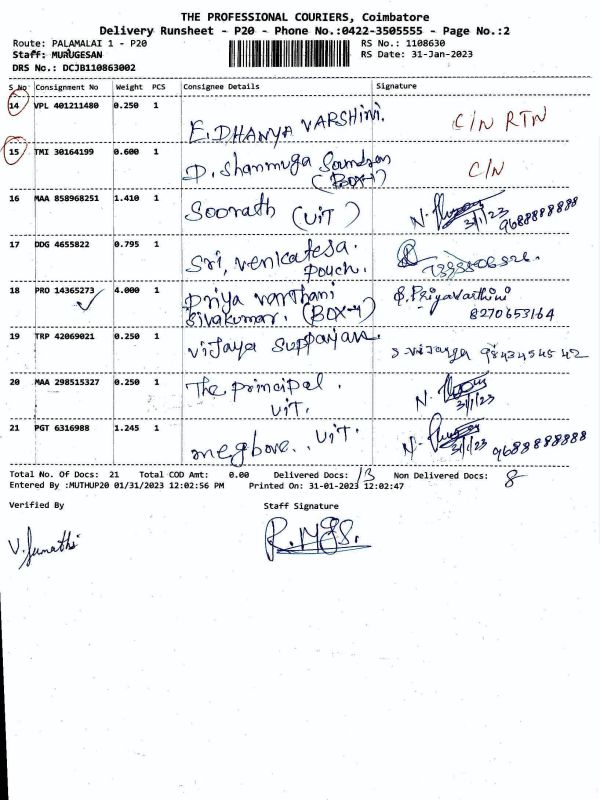 THE PROFESSIONAL COURIERS, Coimbatore
Delivery Runsheet - P20 - Phone No.:0422-3505555 - Page No.:2
Route: PALAMALAI 1 - P20 RS No.: 1108630
Staff: MURUGESAN RS Date: 31-Jan-2023
DRS No.: DCJB110863002
S No Consignment No Weight PCS Consignee Details Signature
14 VPL 401211480 0.250 1 E. DHANYA VARSHINI. C/N RTN
15 TMI 30164199 0.600 1 D. Shanmuga Soundran C/N
(BOX-1)
16 MAA 858968251 1.410 1 Soorath (UIT) N. 31/1/23 9688888888
17 DDG 4655822 0.795 1 Sri, venkatesa.
pouch.
18 PRO 14365273 4.000 1 Priya varthani S. Priyavarthini
Sivakumar. (BOX-4) 8270653164
19 TRP 42069021 0.250 1 vijaya Suppaiyan. S. vijaya 9843454542
20 MAA 298515327 0.250 1 The principal. N. 31/1/23
UIT.
21 PGT 6316988 1.245 1 UIT. N. 31/1/23 9688888888
Total No. Of Docs: 21 Total COD Amt: 0.00 Delivered Docs: 13 Non Delivered Docs: 8
Entered By :MUTHUP20 01/31/2023 12:02:56 PM Printed On: 31-01-2023 12:02:47
Verified By Staff Signature
V. Sumathi